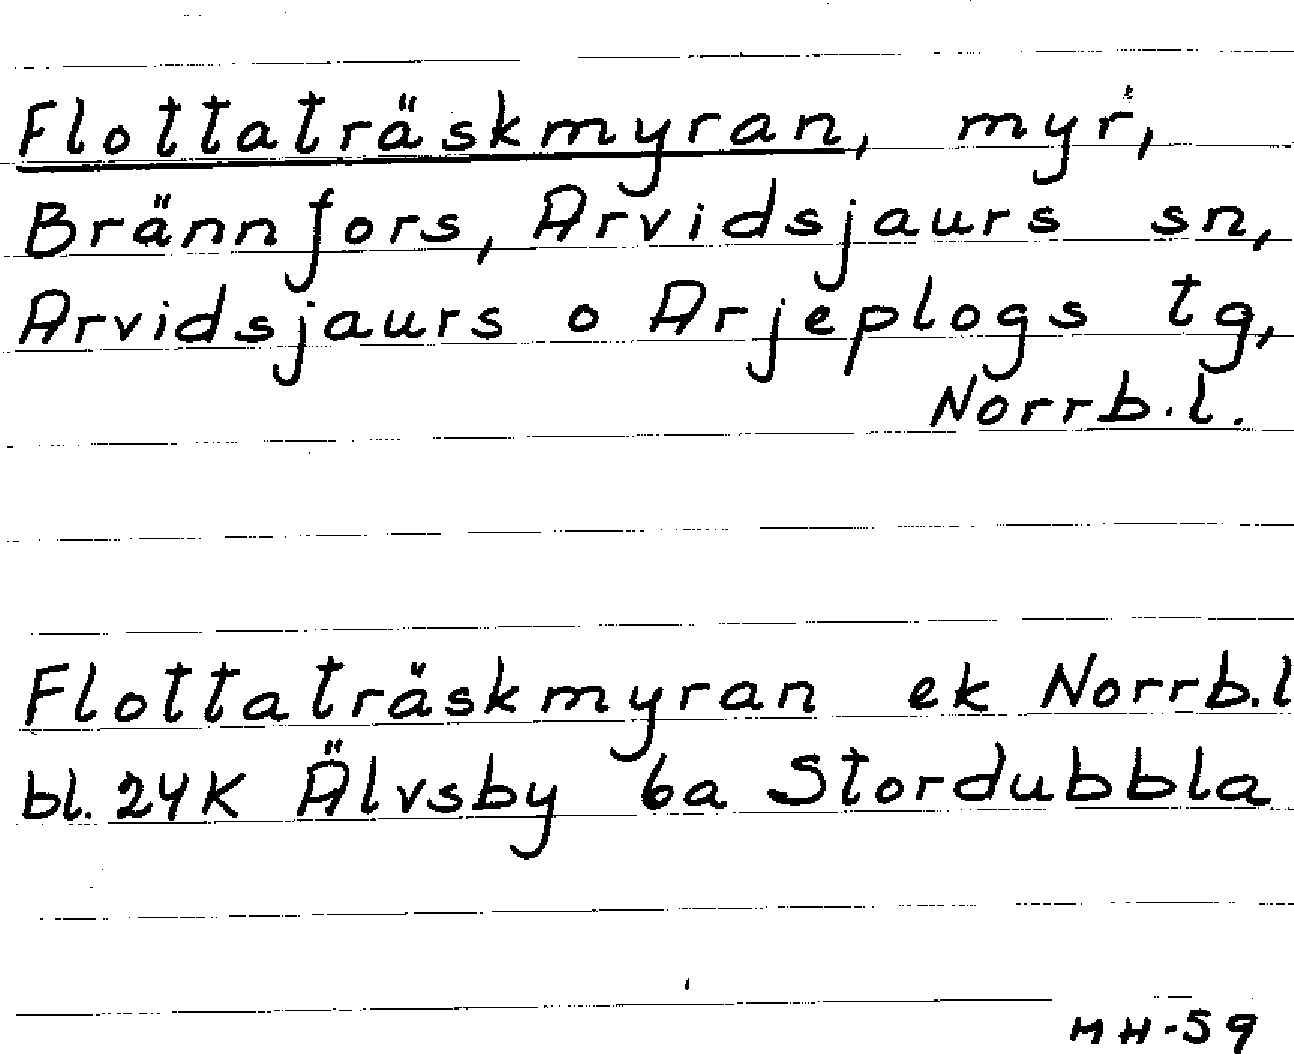 Flottaträskmyran, myr,
Brännfors, Arvidsjaurs sn,
Arvidsjaurs o Arjeplogs tg,
Norrb.l.
Flottaträskmyran ek Norrb.l
bl. 24K Älvsby 6a Stordubbla
MH-59